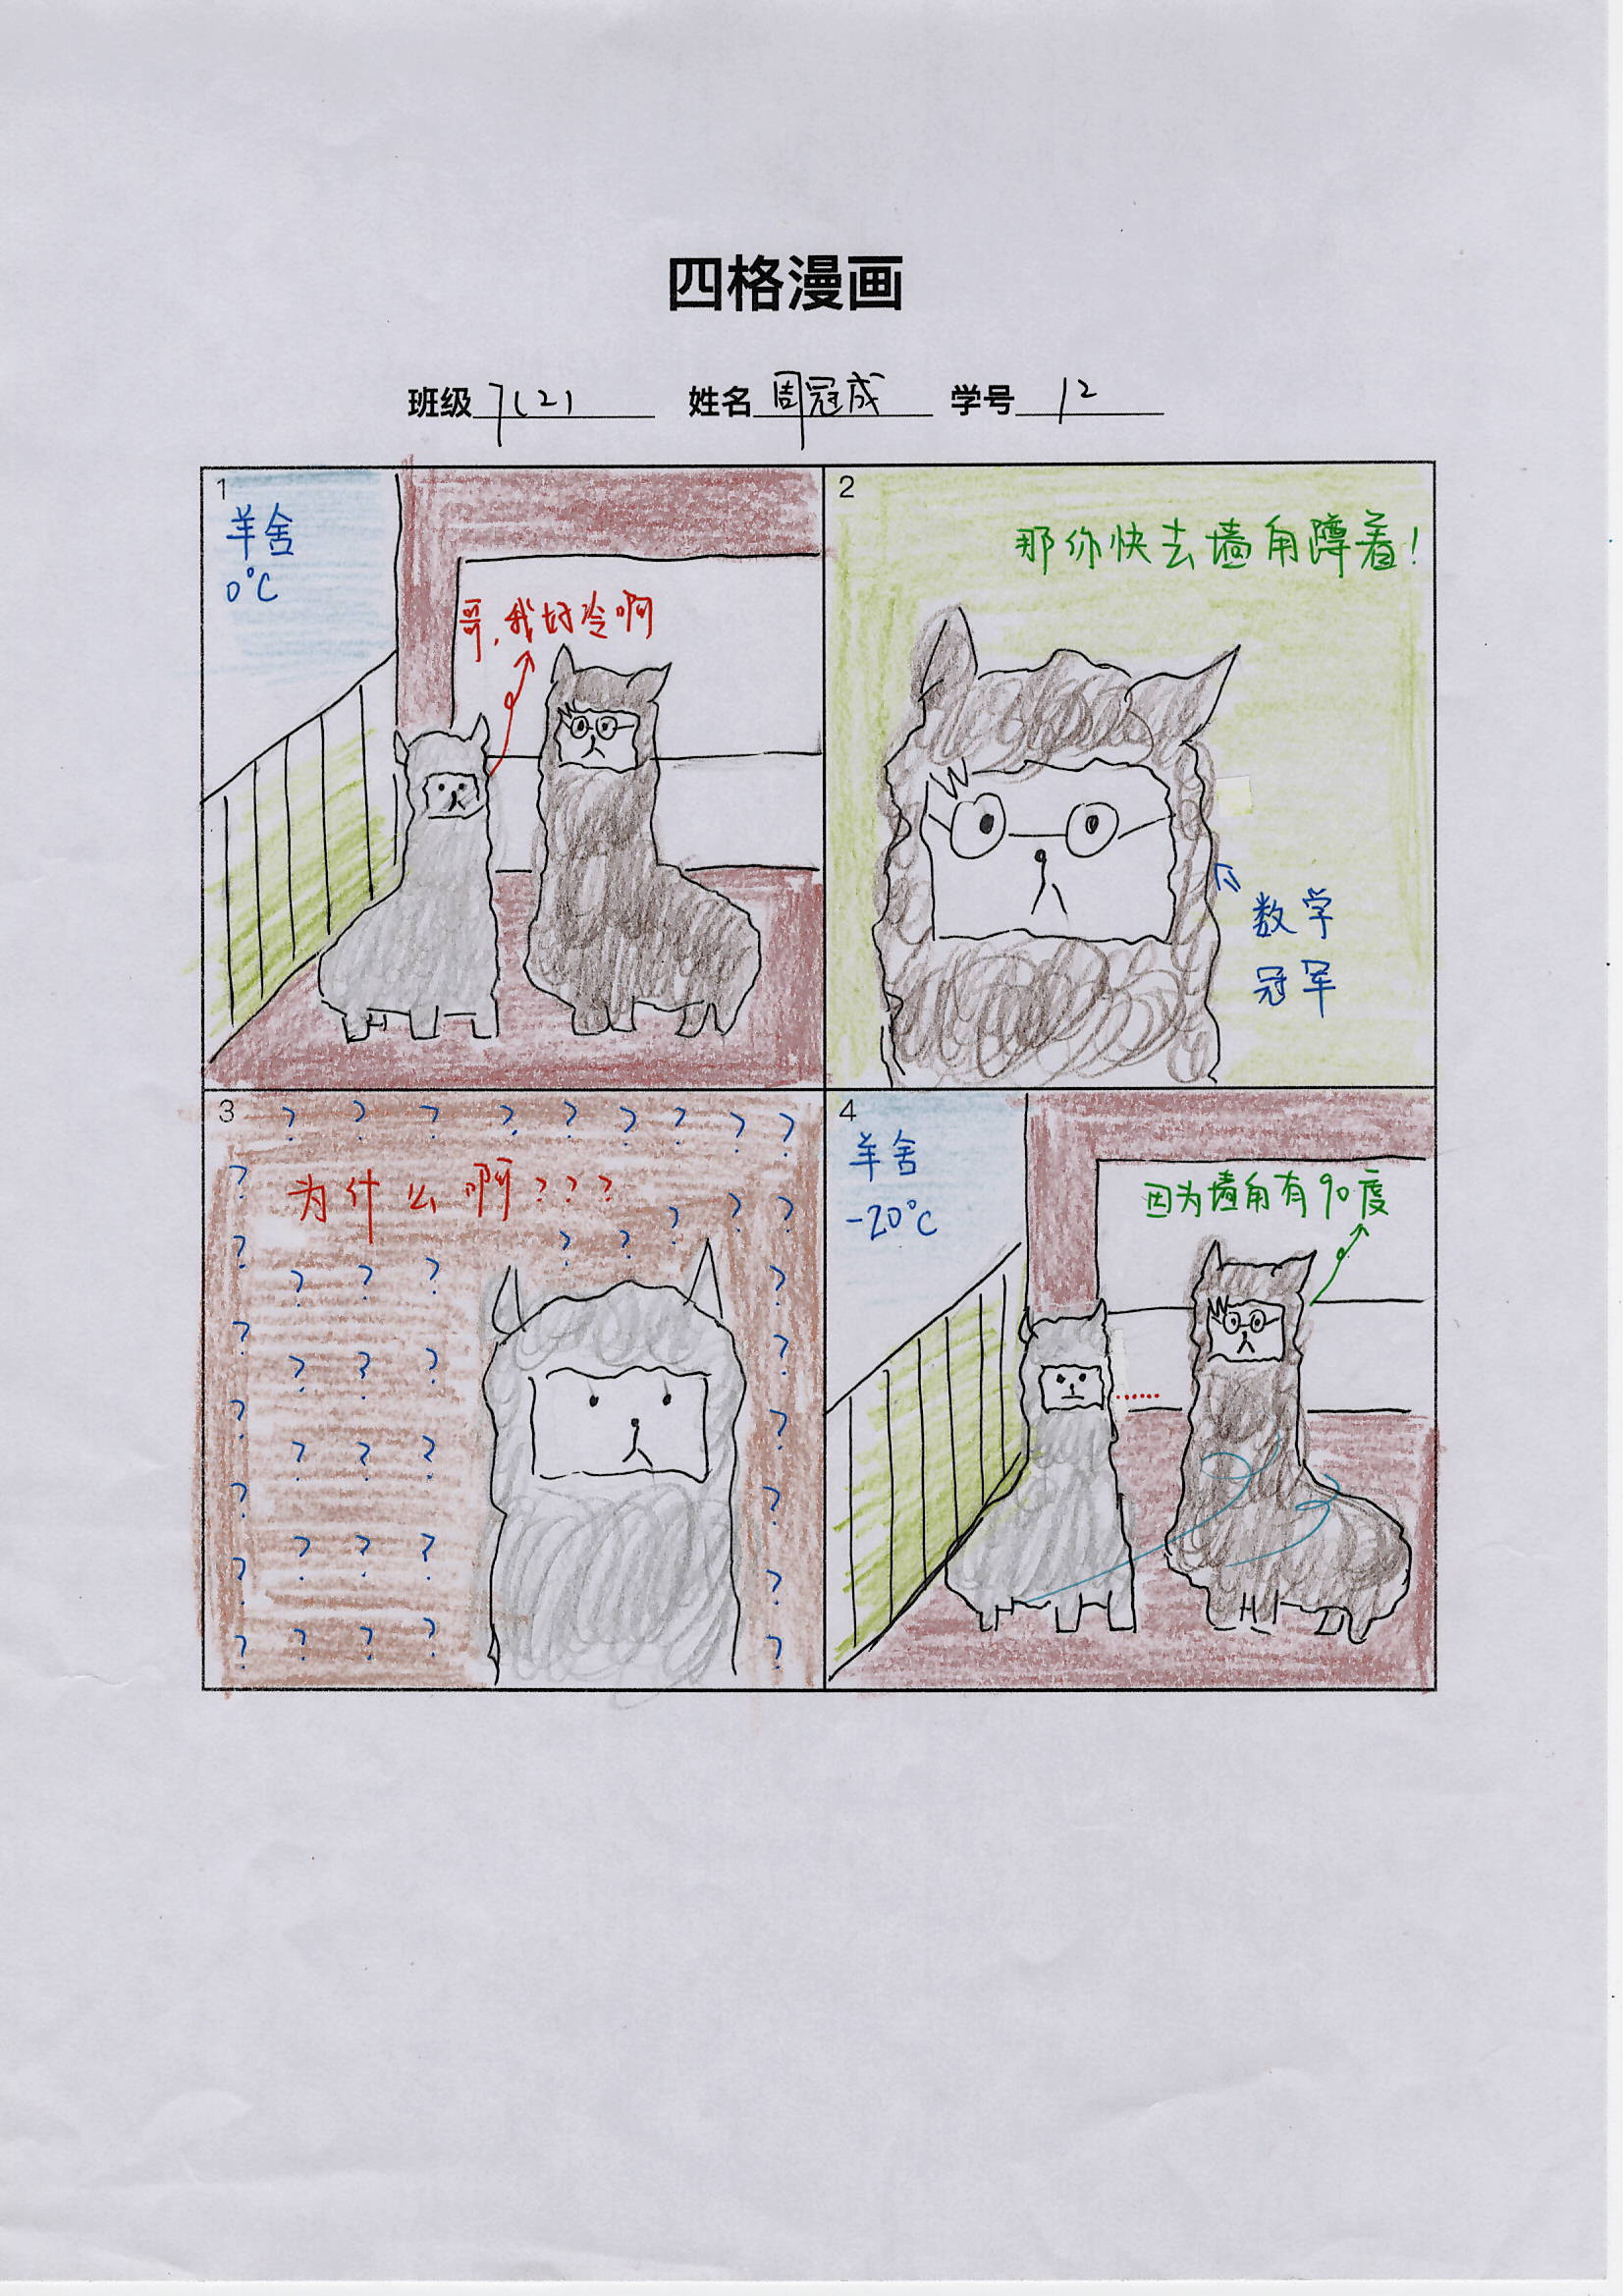 四格漫画
班级 7(2) 姓名 周冠成 学号 12
1
羊舍
0°C
哥,我好冷啊
2
那你快去墙角蹲着!
数学
冠军
3
? ? ? ? ? ? ? ? ?
为什么啊???
4
羊舍
-20°C
因为墙角有90度
……